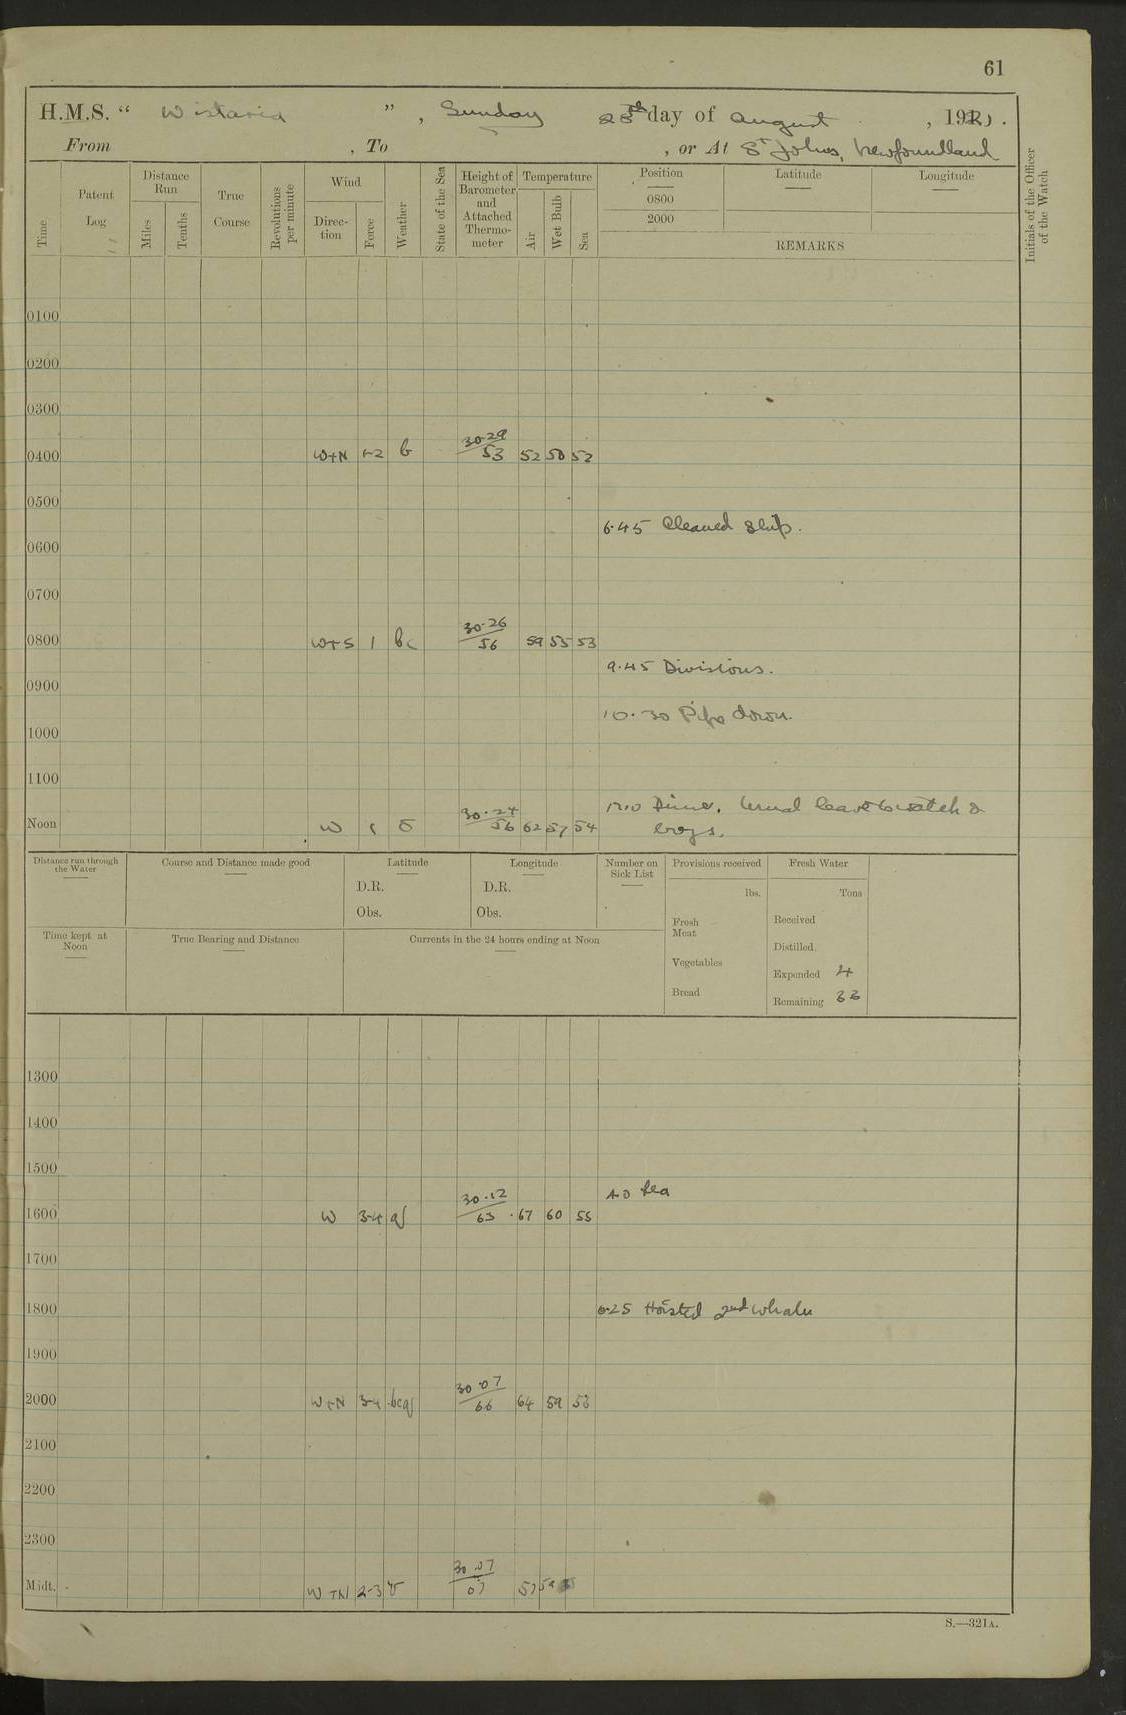 61
H.M.S. “ Wistaria ”, Sunday 28th day of August, 1921.
From , To , or At St Johns, Newfoundland
Time
Patent Log
Distance Run
Miles
Tenths
True Course
Revolutions per minute
Wind
Direction
Force
Weather
State of the Sea
Height of Barometer and Attached Thermometer
Temperature
Air
Wet Bulb
Sea
Position
0800
2000
Latitude
Longitude
REMARKS
Initials of the Officer of the Watch
0100
0200
0300
0400 W+N 1-2 b 30.29/53 52 50 52
0500
6.45 Cleaned Ship.
0600
0700
0800 W+S 1 bc 30.26/56 59 55 53
9.45 Divisions.
0900
10.30 Pipe down.
1000
1100
12.0 Dinner. Usual leave to watch &
boys.
Noon W 30.24/56 62 57 54
Distance run through the Water
Course and Distance made good
Latitude
D.R.
Obs.
Longitude
D.R.
Obs.
Number on Sick List
Provisions received
lbs.
Fresh Meat
Vegetables
Bread
Fresh Water
Tons
Received
Distilled
Expended 4
Remaining 33
Time kept at Noon
True Bearing and Distance
Currents in the 24 hours ending at Noon
1300
1400
1500
4.0 Tea
1600 W 3-4 30.12/63 67 60 55
1700
1800 6.25 Hoisted 2nd Whaler
1900
2000 W+N 3-4 bcq 30.07/66 64 59 53
2100
2200
2300
Midt. W+N 2-3 30.07
S.—321A.